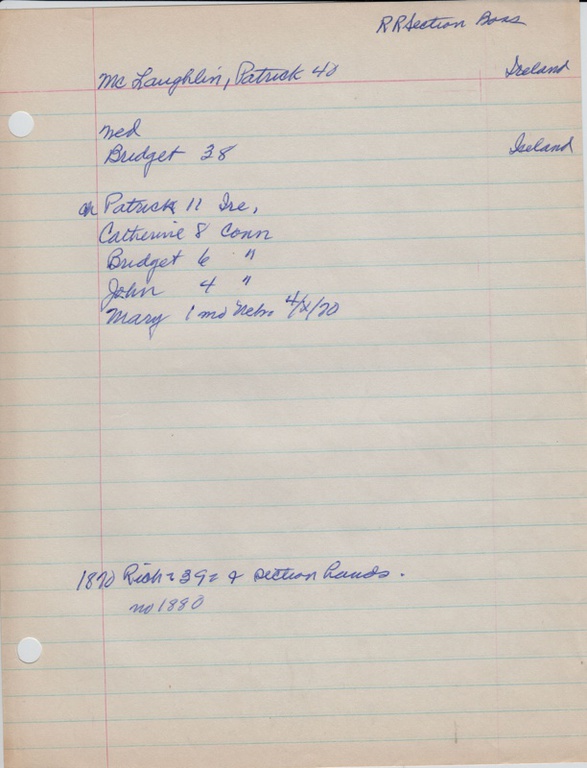 RR Section Boss
McLaughlin, Patrick 40 Ireland
Med
Bridget 38 Ireland
ch Patrick 11 Ire,
Catherine 8 Conn
Bridget 6 "
John 4 "
Mary 1 mo Nebr 4/X/70
1870 Rich - 39 = & section hands.
no 1880